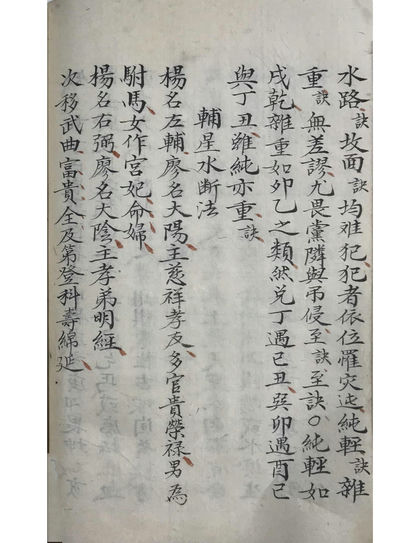 水路訣坟面訣均难犯犯者依位罹灾迍純輕訣雜
重訣無差謬尤畏黨隣與吊侵至訣至訣○純輕如
戌乾雜重如卯乙之類然兌丁遇巳丑癸卯遇酉己
與丁丑雖純亦重訣
輔星水断法
楊名左輔廖名大陽主慈祥孝友多官貴榮祿男為
駙馬女作宮妃命婦
楊名右弼廖名大陰主孝弟明經
次移武曲富貴全及第登科壽綿延